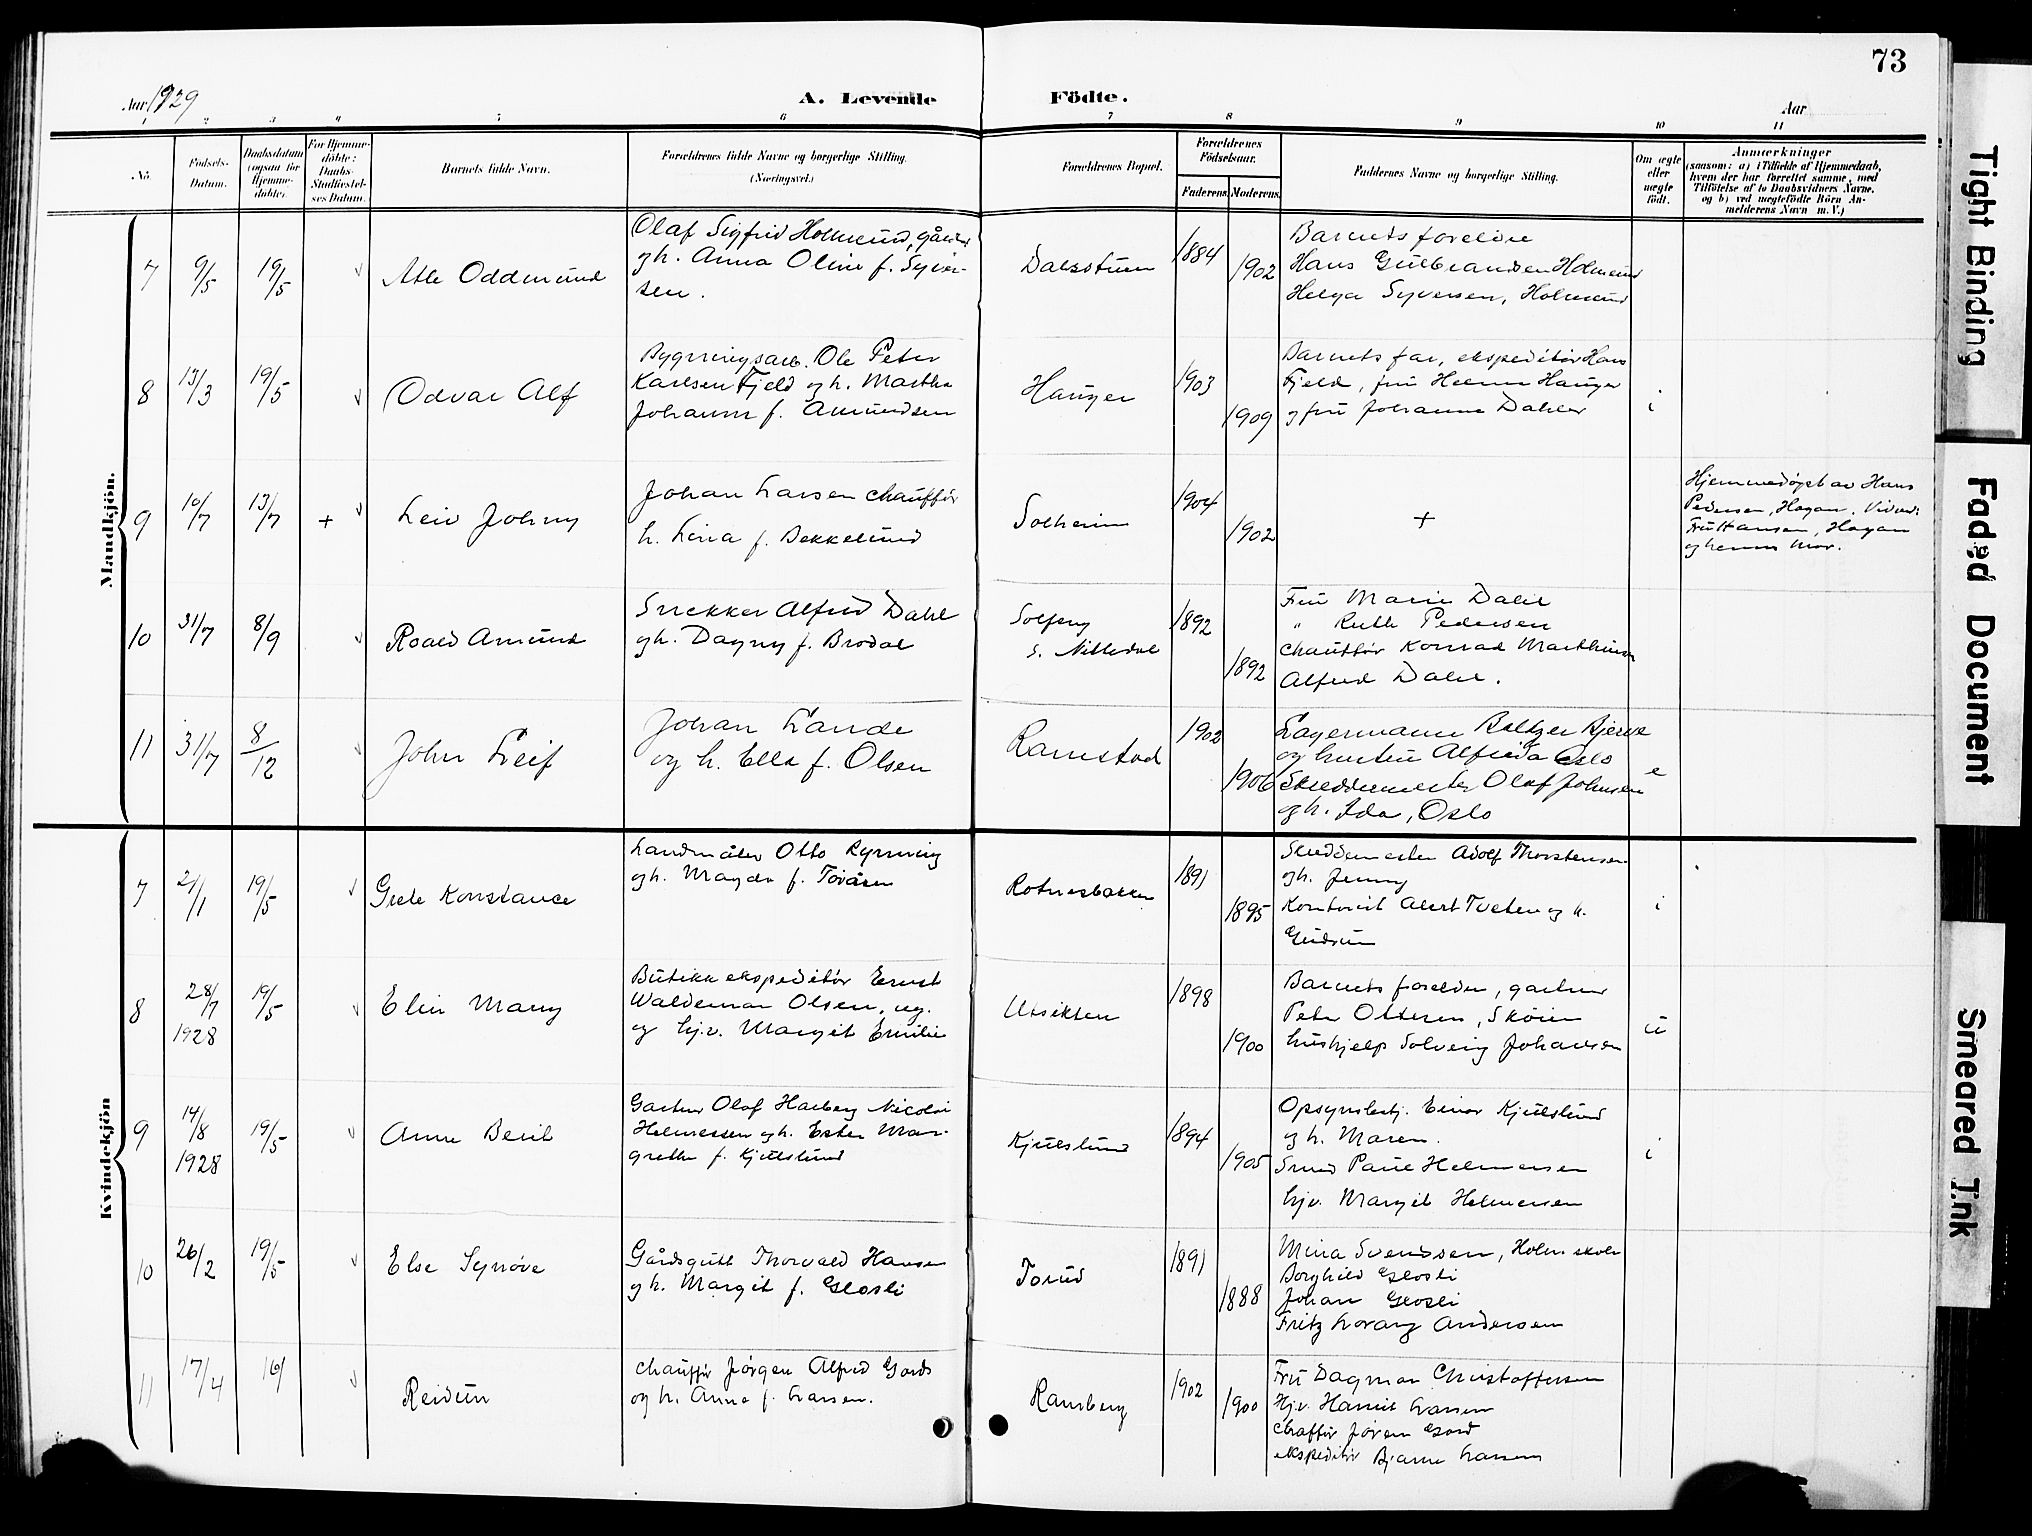 73
Aar 1929
A. Levende Födte.
Aar
1 2 3 4 5 6 7 8 9 10 11
No.
Födsels-
Datum.
Daabsdatum
(ogsaa for
Hjemme-
döbte).
For Hjemme-
döbte:
Daabs-
Stadfæstel-
ses Datum.
Barnets fulde Navn.
Forældrenes fulde Navne og borgerlige Stilling.
(Næringsvei.)
Forældrenes Bopæl.
Forældrenes
Födselsaar.
Faderens. Moderens.
Faddernes Navne og borgerlige Stilling.
Om ægte
eller
uægte
födt.
Anmærkninger
(saasom: a) i Tilfælde af Hjemmedaab,
hvem der har forrettet samme, med
Tilföielse af to Daabsvidners Navne.
og b) ved uægtefödte Börn An-
melderens Navn m. V.)
Mandkjön.
7 9/5 19/5 Atle Oddmund
Olaf Sigfrid Holmsund,
og h. Anna Oline f. Syver-
sen.
1884 1902
Barnets foreldre
Hans Gulbrandsen
Helga Syversen,
8 13/3 19/5 Odvar Alf
Bygningsarb. Ole Peter
Karlsen Fjeld og h. Martha
Johanne f. Amundsen
Hauger 1903 1909
Barnets far, ekspeditör Hans
Fjeld, fru Helene Hauger
og fru Johanne Dahler
i
9 10/7 13/7 + Leiv Johny
Johan Larsen chaufför
h. Lina f. Bekkelund
Solheim 1904 1902 +
Hjemmedöpt av Hans
Pedersen, Hagan.
Fru Hansen, Hagan
og barnets mor.
10 31/7 8/9 Roald Amund
Snekker Alfred Dahl
og h. Dagny f. Brodal
Solfeng
s. Nittedal
1892 1892
Fru Marie Dahl
" Ruth Pedersen
Chaufför Konrad Marthinsen
Alfred Dahl.
11 31/7 8/12 John Leif
Johan Lande
og h. Ella f. Olsen
Ramstad 1902 1906
Lagermann Baltzer Bjerke
og hustru Alfrida Oslo
Skreddermester Olaf Johnsen
og h. Ida, Oslo
e
Kvindekjön
7 21/1 19/5 Grete Konstance
Landmåler Otto Rynning
og h. Magda f.
Rotnesbakken 1891 1895
Skreddermester Adolf Thorstensen
og h. Jenny
Kontorist Albert Tveten og h.
Gudrun
i
8 28/7 1928 19/5 Elin Mary
Butikkekspeditör Ernst
Waldemar Olsen, ug.
og hj.v. Margit Emilie
Utsikten 1898 1900
Barnets foreldre, gartner
Peter Ottersen, Sköien
hushjelp Solveig Johansen
u
9 14/8 1928 19/5 Anne Beril
Gartner Olaf Harberg Nicolai
Helmersen og h. Ester Mar-
grethe f. Kjulslund
Kjulslund 1894 1905
Opsynsbetj. Einar Kjulslund
og h. Maren.
Smed Paul Helmersen
hj.v. Margit Helmersen
i
10 26/2 19/5 Else Synöve
Gårdsgutt Thorvald Hansen
og h. Margit f. Glosli
Torud 1891 1888
Mina Svendsen, Holm skole
Borghild Glosli
Johan Glosli
Fritz Lorang Andersen
11 17/4 16/ Reidun
Chaufför Jörgen Alfred Gord
og h. Anna f. Larsen.
Ramberg 1902 1900
Fru Dagmar Christoffersen
Hj.v. Harriet Larsen
Chafför Jörgen Gord
ekspeditör Bjarne Larsen
Tight Binding
Faded Document
Smeared Ink